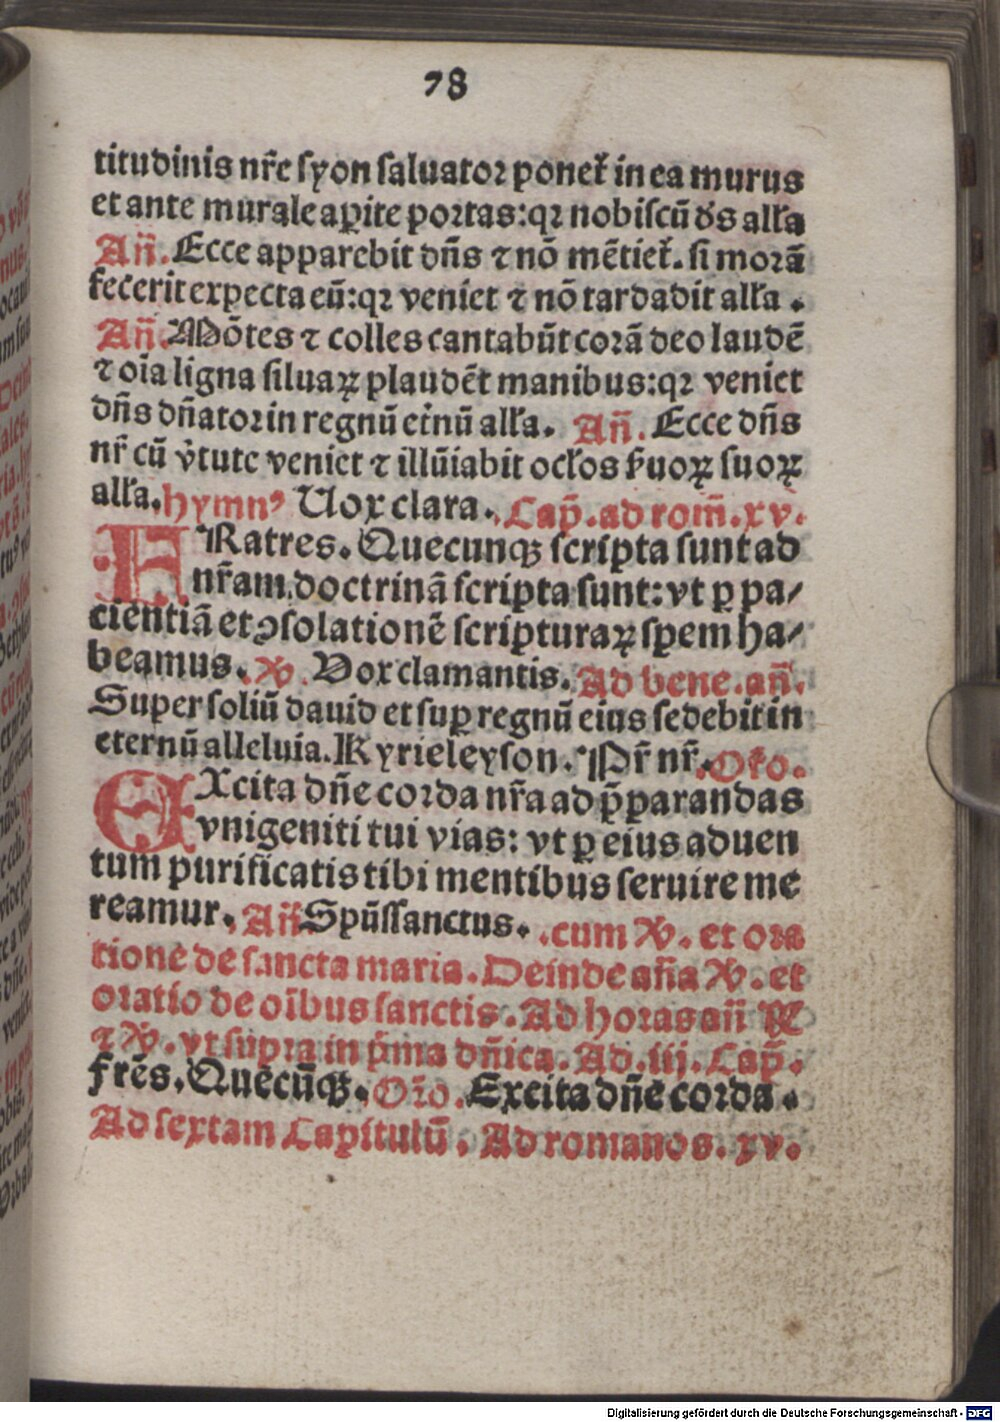 78
titudinis nr̄e syon saluator ponet̄ in ea murus
et ante murale aꝑite portas:qꝛ nobiscū d̄s all̄a
Añ. Ecce apparebit dñs ⁊ nō mētiet̄. si morā
fecerit expecta eū:qꝛ veniet ⁊ nō tardabit all̄a.
Añ. Mōtes ⁊ colles cantabūt corā deo laudē
⁊ oīa ligna siluaꝝ plaudēt manibus:qꝛ veniet
dñs dñator in regnū et̄nū all̄a. Añ. Ecce dñs
nr̄ cū v̄tute veniet ⁊ illūīabit ocl̄os s̄uoꝝ suoꝝ
all̄a. hymnꝰ Uox clara. Cap̄. ad rom̄. xv.
FRatres. Quecunqꝫ scripta sunt ad
nr̄am doctrinā scripta sunt: vt ꝑ pa/
cientiā et ↄsolationē scripturaꝝ spem ha/
beamus. ℣. Vox clamantis. Ad bene. añ.
Super soliū dauid et suꝑ regnū eius sedebit in
eternū alleluia. Kyrieleyson. Pr̄ nr̄. Or̄o.
EXcita dñe corda nr̄a ad p̄parandas
vnigeniti tui vias: vt ꝑ eius aduen
tum purificatis tibi mentibus seruire me
reamur. Añ Sp̄ūssanctus. cum ℣. et ora
tione de sancta maria. Deinde an̄a ℣. et
oratio de oībus sanctis. Ad horas añ ℟
⁊ ℣. vt supra in p̄ma dñica. Ad. iij. Cap̄.
fr̄es. Quecūqꝫ. Or̄o. Excita dñe corda.
Ad sextam Capitulū. Ad romanos. xv.
Digitalisierung gefördert durch die Deutsche Forschungsgemeinschaft - DFG